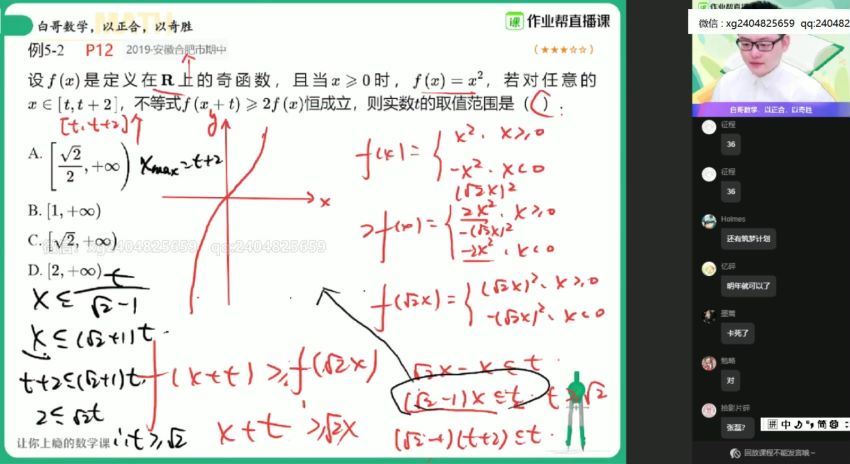 白哥数学，以正合，以奇胜
作业帮直播课
例5-2 P12 2019·安徽合肥市期中
(★★★☆☆)
设 f(x) 是定义在 R 上的奇函数，且当 x ⩾ 0 时，f(x) = x²，若对任意的
x ∈ [t, t + 2]，不等式 f(x + t) ⩾ 2f(x) 恒成立，则实数t的取值范围是（ C ）.
[t, t+2]↑
A. [√2/2, +∞)
xmax = t+2
B. [1, +∞)
C. [√2, +∞)
D. [2, +∞)
y
x
f(x) = { x², x ≥ 0
-x², x < 0
(√2x)²
2f(x) = { 2x², x ≥ 0
-(√2x)²
-2x², x < 0
f(√2x) = { (√2x)², x ≥ 0
-(√2x)², x < 0
x ≤ t/(√2-1)
x ≤ (√2+1)t.
t+2 ≤ (√2+1)t
2 ≤ √2t
∴ t ≥ √2
f(x+t) ≥ f(√2x)
x+t ≥ √2x
√2x - x ≤ t.
(√2-1)x ≤ t. t ≥ √2
(√2-1)(t+2) ≤ t.
让你上瘾的数学课
微信：xg2404825659 qq:2404825659
微信 : xg2404825659 qq:240482
白哥数学，以正合，以奇胜
征程
36
征程
36
Holmes
还有筑梦计划
亿辞
明年就可以了
卡死了
勉略
对
拾影片碎
张磊？
拼 中 简
回放课程不能发言哦~